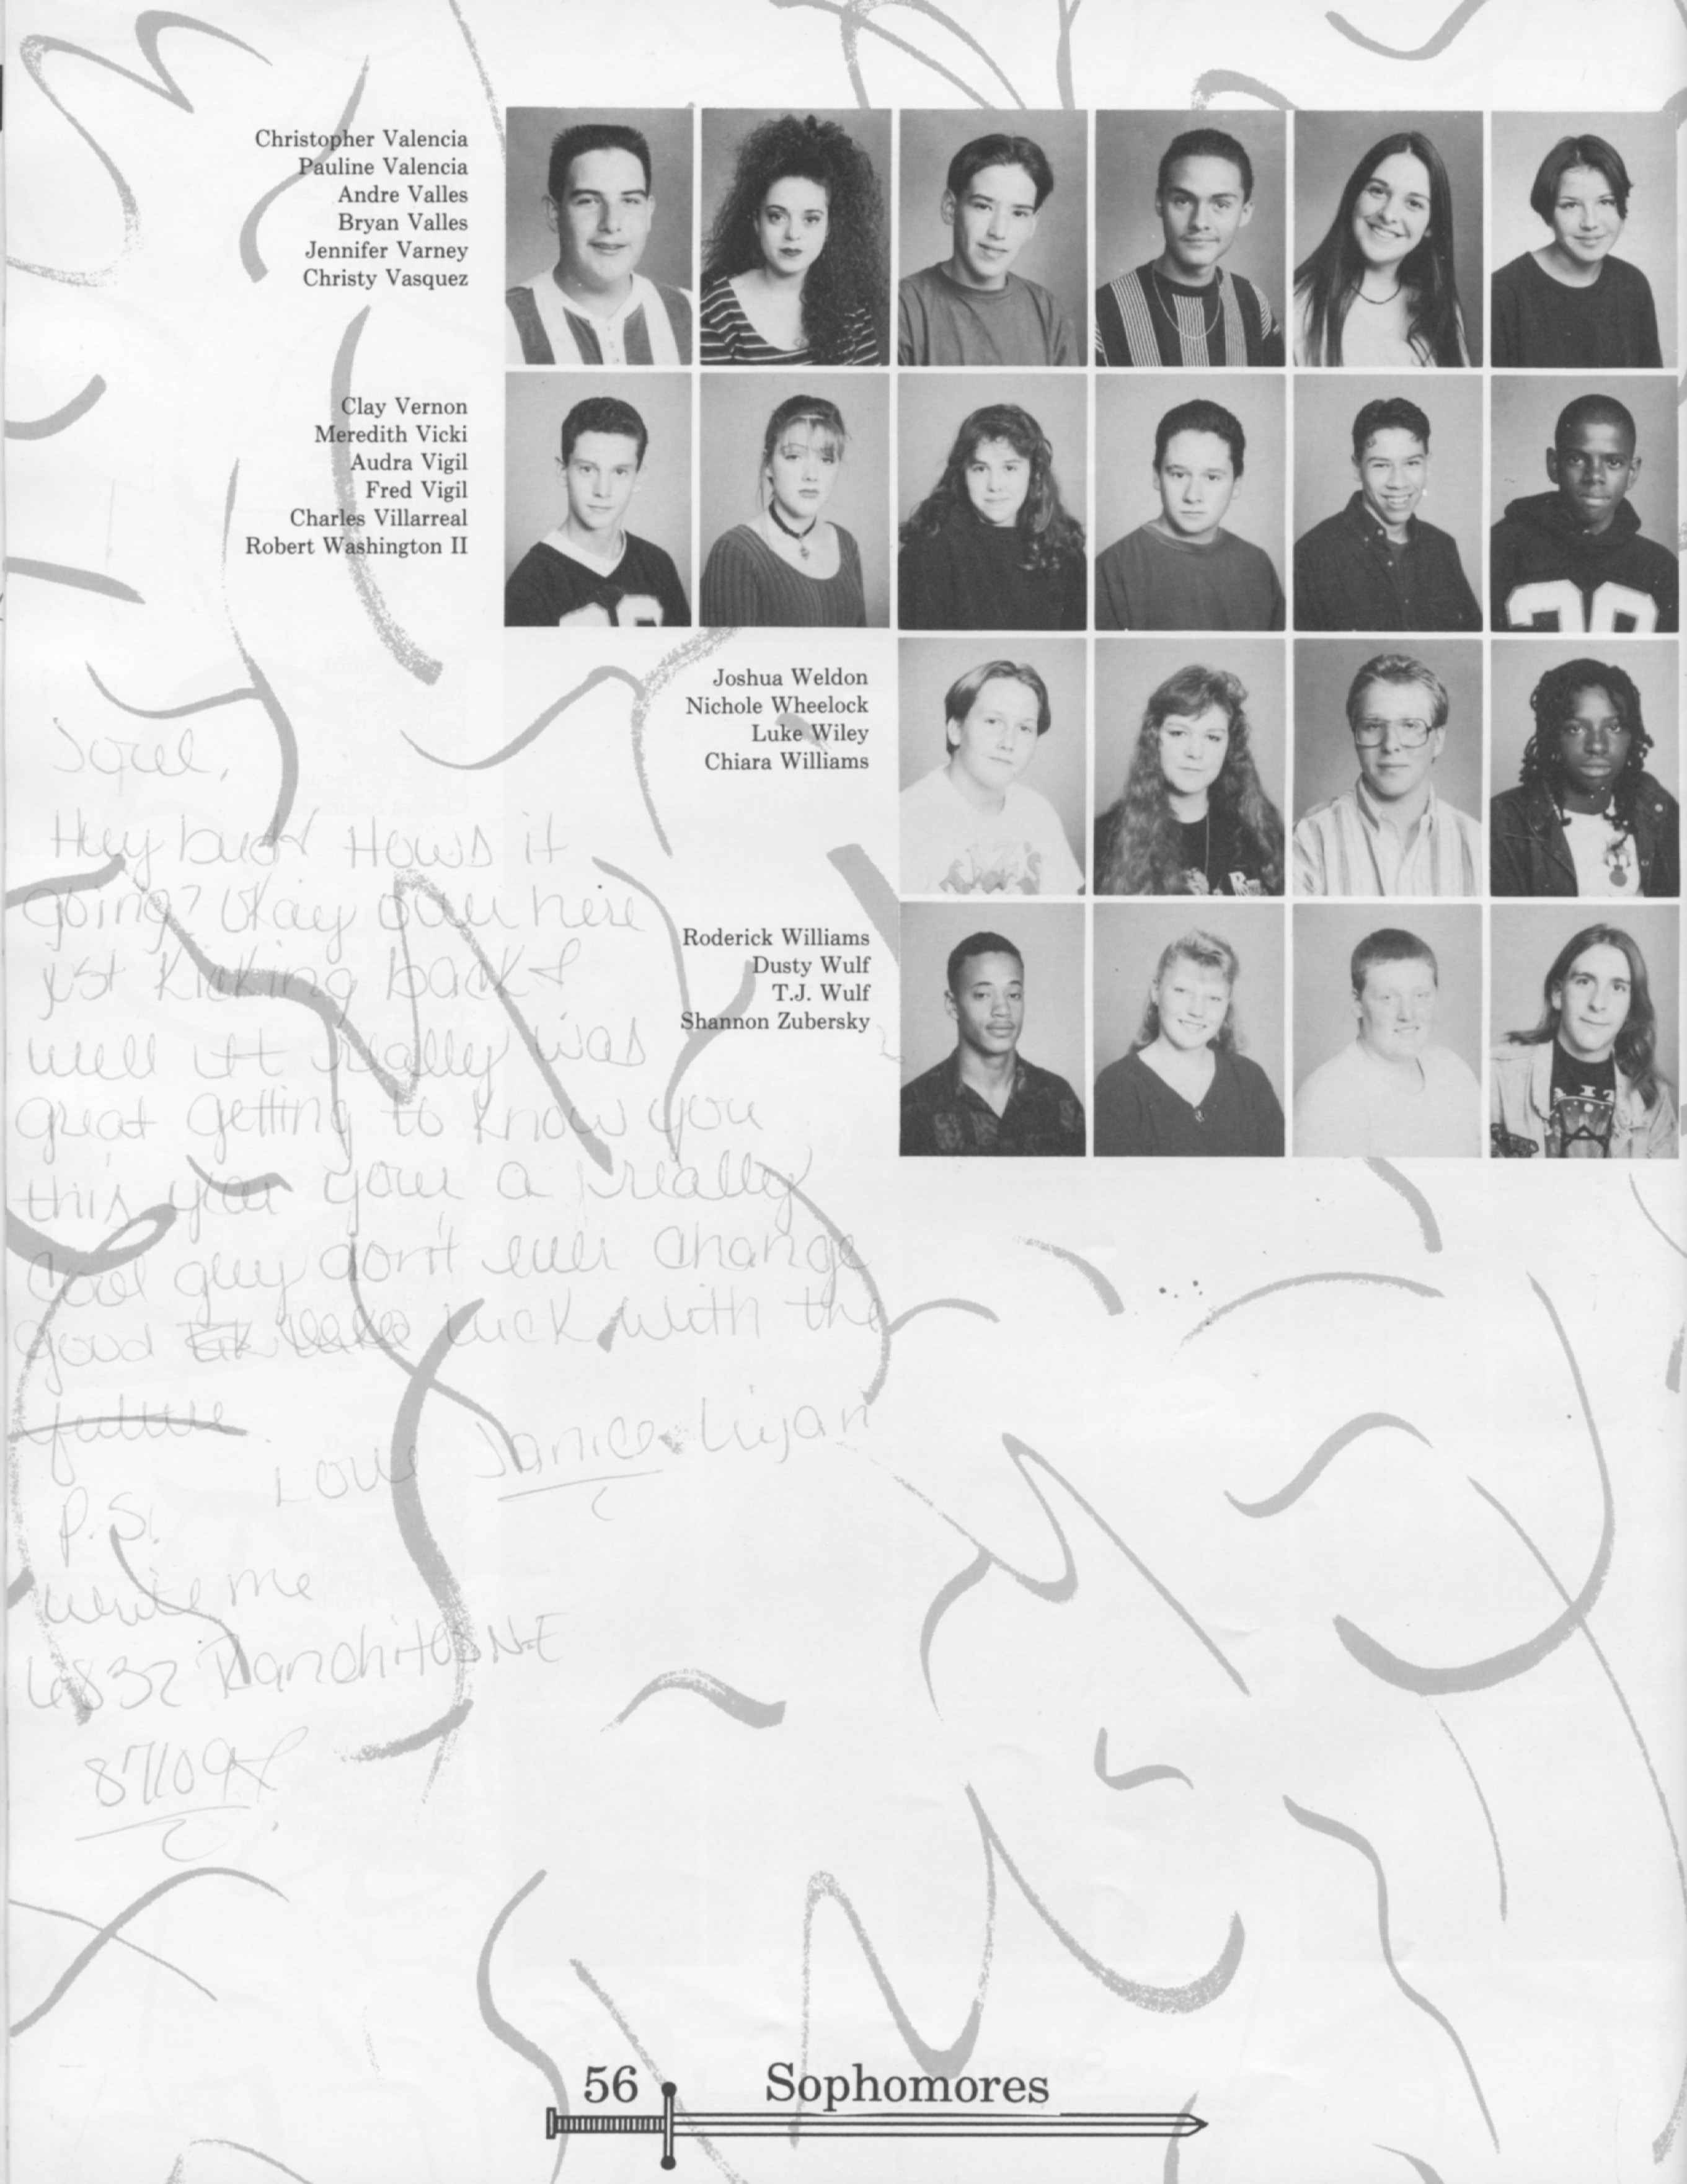 Christopher Valencia
Pauline Valencia
Andre Valles
Bryan Valles
Jennifer Varney
Christy Vasquez
Clay Vernon
Meredith Vicki
Audra Vigil
Fred Vigil
Charles Villarreal
Robert Washington II
Joshua Weldon
Nichole Wheelock
Luke Wiley
Chiara Williams
Roderick Williams
Dusty Wulf
T.J. Wulf
Shannon Zubersky
Hey bud Hows it
going? Okay over here
just kicking back
well it really was
great getting to know you
this year your a really
cool guy don't ever change
good luck with the
future
Love Janice Lujan
P.S.
write me
6832 Ranchitos NE
87109
56 Sophomores